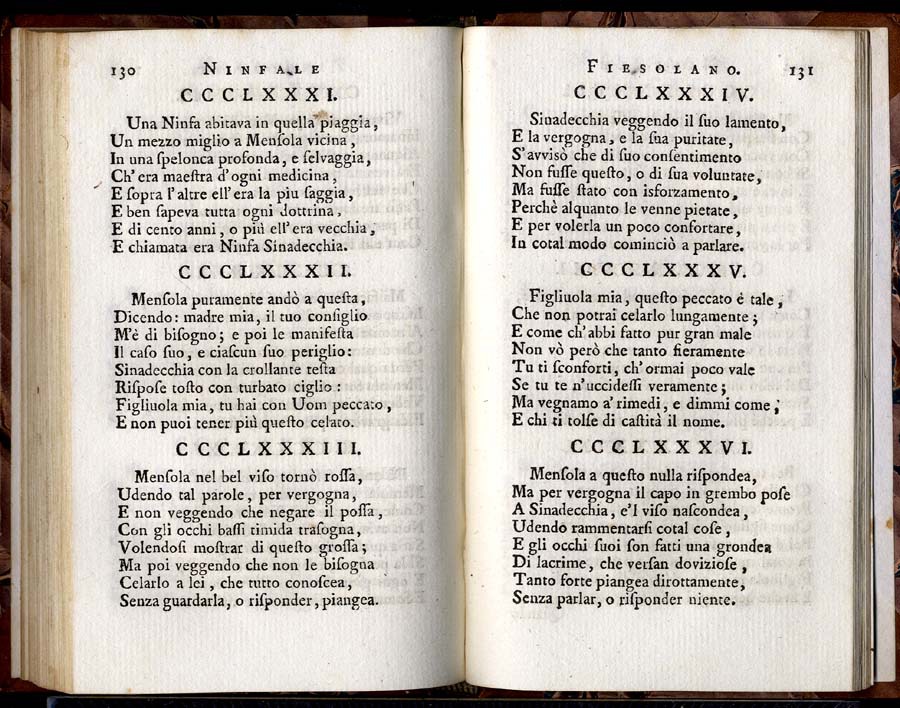 130 NINFALE
CCCLXXXI.
Una Ninfa abitava in quella piaggia,
Un mezzo miglio a Menſola vicina,
In una ſpelonca profonda, e ſelvaggia,
Ch'era maeſtra d'ogni medicina,
E ſopra l'altre ell'era la piu ſaggia,
E ben ſapeva tutta ogni dottrina,
E di cento anni, o più ell'era vecchia,
E chiamata era Ninfa Sinadecchia.
CCCLXXXII.
Menſola puramente andò a queſta,
Dicendo: madre mia, il tuo conſiglio
M'è di biſogno; e poi le manifeſta
Il caſo ſuo, e ciaſcun ſuo periglio:
Sinadecchia con la crollante teſta
Riſpoſe toſto con turbato ciglio:
Figliuola mia, tu hai con Uom peccato,
E non puoi tener più queſto celato.
CCCLXXXIII.
Menſola nel bel viſo tornò roſſa,
Udendo tal parole, per vergogna,
E non veggendo che negare il poſſa,
Con gli occhi baſſi timida traſogna,
Volendoſi moſtrar di queſto groſſa;
Ma poi veggendo che non le biſogna
Celarlo a lei, che tutto conoſcea,
Senza guardarla, o riſponder, piangea.
FIESOLANO. 131
CCCLXXXIV.
Sinadecchia veggendo il ſuo lamento,
E la vergogna, e la ſua puritate,
S'avvisò che di ſuo conſentimento
Non fuſſe queſto, o di ſua voluntate,
Ma fuſſe ſtato con isforzamento,
Perchè alquanto le venne pietate,
E per volerla un poco confortare,
In cotal modo cominciò a parlare.
CCCLXXXV.
Figliuola mia, queſto peccato é tale,
Che non potrai celarlo lungamente;
E come ch'abbi fatto pur gran male
Non vò però che tanto fieramente
Tu ti ſconforti, ch'ormai poco vale
Se tu te n'uccideſſi veramente;
Ma vegnamo a' rimedi, e dimmi come,
E chi ti tolſe di caſtità il nome.
CCCLXXXVI.
Menſola a queſto nulla riſpondea,
Ma per vergogna il capo in grembo poſe
A Sinadecchia, e'l viſo naſcondea,
Udendo rammentarſi cotal coſe,
E gli occhi ſuoi ſon fatti una grondea
Di lacrime, che verſan dovizioſe,
Tanto forte piangea dirottamente,
Senza parlar, o riſponder niente.